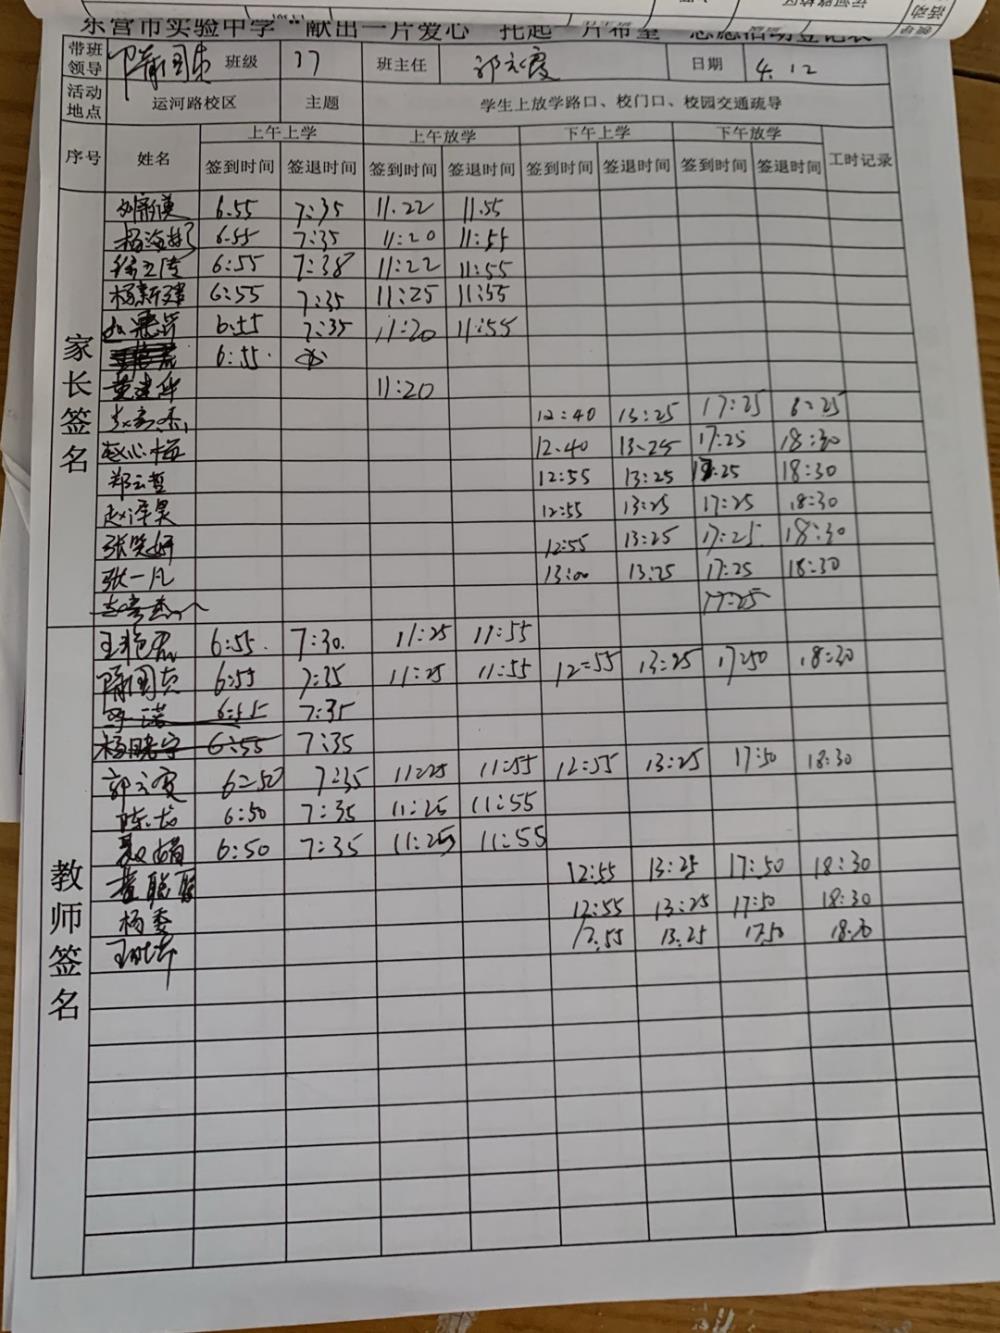 东营市实验中学"献出一片爱心 托起一片希望"志愿活动登记表
带班领导 隋国贞 班级 37 班主任 郭云霞 日期 4.12
活动地点 运河路校区 主题 学生上放学路口、校门口、校园交通疏导
序号 姓名 上午上学 上午放学 下午上学 下午放学 工时记录
签到时间 签退时间 签到时间 签退时间 签到时间 签退时间 签到时间 签退时间
家长签名
6.55 7:35 11.22 11.55
6.55 7:35 11:20 11:55
6:55 7:38 11:22 11:55
杨新建 6:55 7:35 11:25 11:55
6:55 7:35 11:20 11:55
6:55
黄建华 11:20
12:40 13:25 17:25 6:25
赵心梅 12.40 13.25 17:25 18:30
郑云哲 12:55 13:25 17:25 18:30
赵泽昊 12:55 13:25 17:25 18:30
张笑妍 12:55 13:25 17:25 18:30
张一凡 13:00 13:25 17:25 18:30
17:25
教师签名
王艳君 6:55 7:30 11:25 11:55
隋国贞 6:55 7:35 11:25 11:55 12=55 13:25 17:50 18:30
6:55 7:35
杨晓宇 6:55 7:35
郭云霞 6=50 7:35 11:25 11:55 12:55 13:25 17:50 18:30
陈龙 6:50 7:35 11:25 11:55
6:50 7:35 11:25 11:55
12:55 13:25 17:50 18:30
杨委 12:55 13:25 17:50 18:30
12.55 13.25 17.50